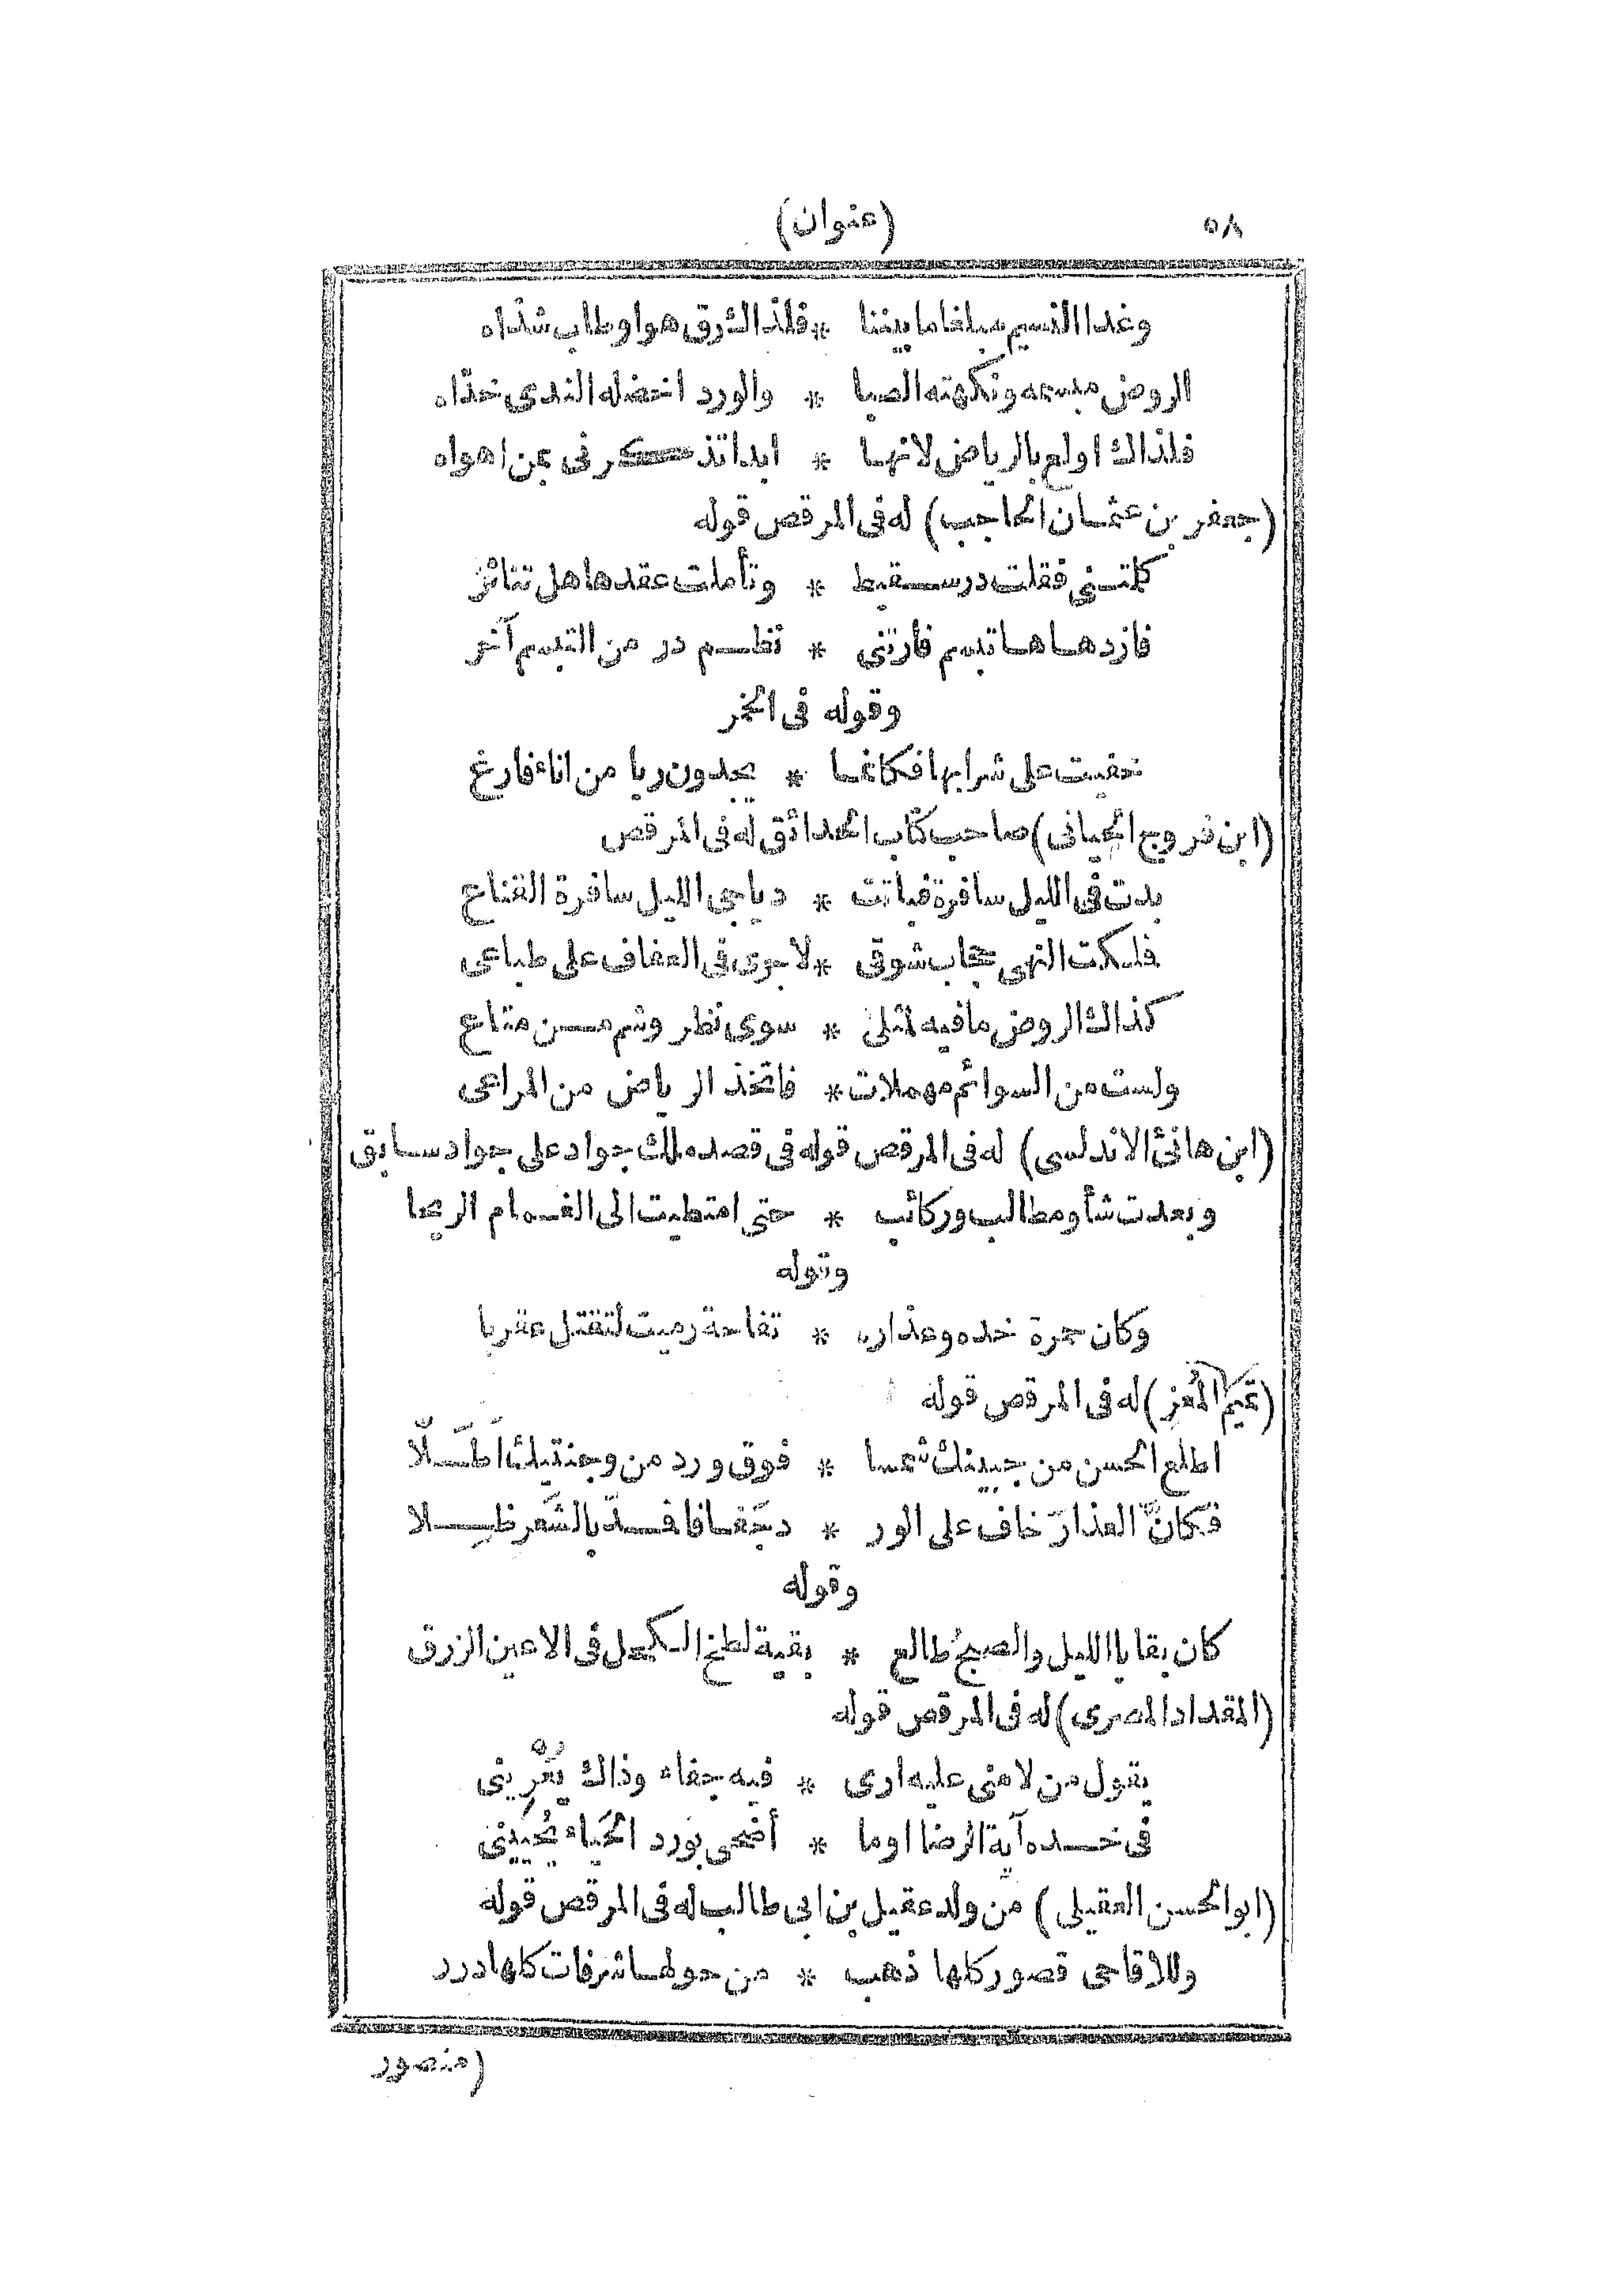 ٥٨ (عنوان)
وغدا النسيم مبلغا ما بيننا * فلذاك رق هوا وطاب شذاه
الروض مبسمه ونكهته الصبا * والورد اخضله الندى خداه
فلذاك اولع بالرياض لانها * ابدا تذكرنى بمن اهواه
(جعفر بن عثمان الحاجب) له فى المرقص قوله
كلمتنى فقلت در سقيط * وتأملت عقدها هل تناثر
فازدهاها تبسم فأرتنى * نظم در من التبسم آخر
وقوله فى الخمر
خفيت على شرابها فكانما * يجدون ريا من اناء فارغ
(ابن فروج الجيانى) صاحب كتاب الحدائق له فى المرقص
بدت فى الليل سافرة فباتت * دياجى الليل سافرة القناع
فلمكت النهى حجاب شوقى * لاجرى فى العفاف على طباعى
كذاك الروض مافيه لمثلى * سوى نظر وشم من متاع
ولست من السوائم مهملات * فاتخذ الرياض من المراعى
(ابن هانئ الاندلسى) له فى المرقص قوله فى قصده ملك جواد على جواد سابق
وبعدت شأو مطالب وركائب * حتى امتطيت الى الغمام الريحا
وقوله
وكان حمرة خده وعذاره * تفاحة رميت لتقتل عقربا
(تميم المعز) له فى المرقص قوله
اطلع الحسن من جبينك شمسا * فوق ورد من وجنتيك اَطَلّا
فكانّ العذارَ خاف على الور * دجَفافا فمدّ بالشَعر ظِلا
وقوله
كان بقايا الليل والصبح طالع * بقية لطخ الكحل فى الاعين الزرق
(المقداد المصرى) له فى المرقص قوله
يقول من لامنى عليه ارى * فيه جفاء وذاك يُغْرِينى
فى خده آية الرضا اوما * أضحى بورد الحَياء يُحَيينى
(ابو الحسن العقيلى) من ولد عقيل بن ابى طالب له فى المرقص قوله
وللاقاحى قصور كلها ذهب * من حولها شرفات كلها درر
(منصور